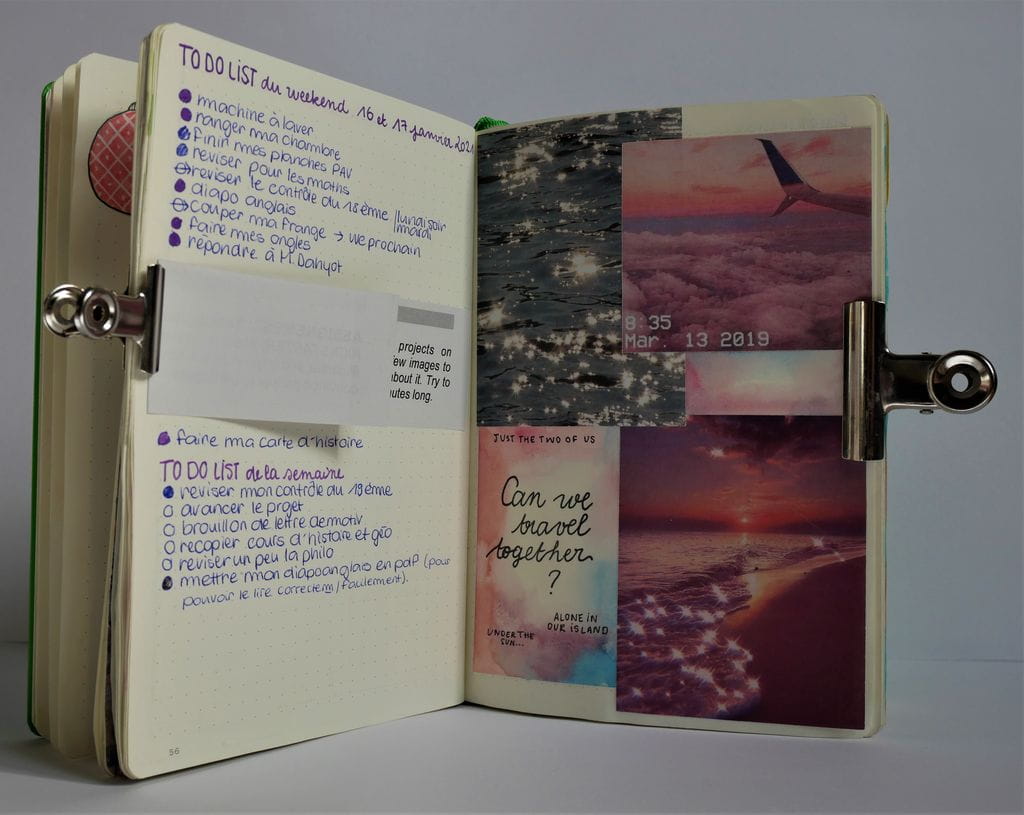 TO DO LIST du weekend 16 et 17 janvier 2021
machine à laver
ranger ma chambre
finir mes planches PAV
reviser pour les maths
reviser le contrôle du 18ème /lundi soir
/mardi
diapo anglais
couper ma frange → we prochain
faire mes ongles
répondre à M. Danyot
projects on
few images to
about it. Try to
utes long.
faire ma carte d'histoire
TO DO LIST de la semaine
reviser mon contrôle du 19ème
avancer le projet
brouillon de lettre de motiv
recopier cours d'histoire et géo
reviser un peu la philo
mettre mon diapo anglais en pdf (pour
pouvoir le lire correctem/facilement).
56
8:35
Mar. 13 2019
JUST THE TWO OF US
Can we
travel
together
?
ALONE IN
OUR ISLAND
UNDER THE
SUN...